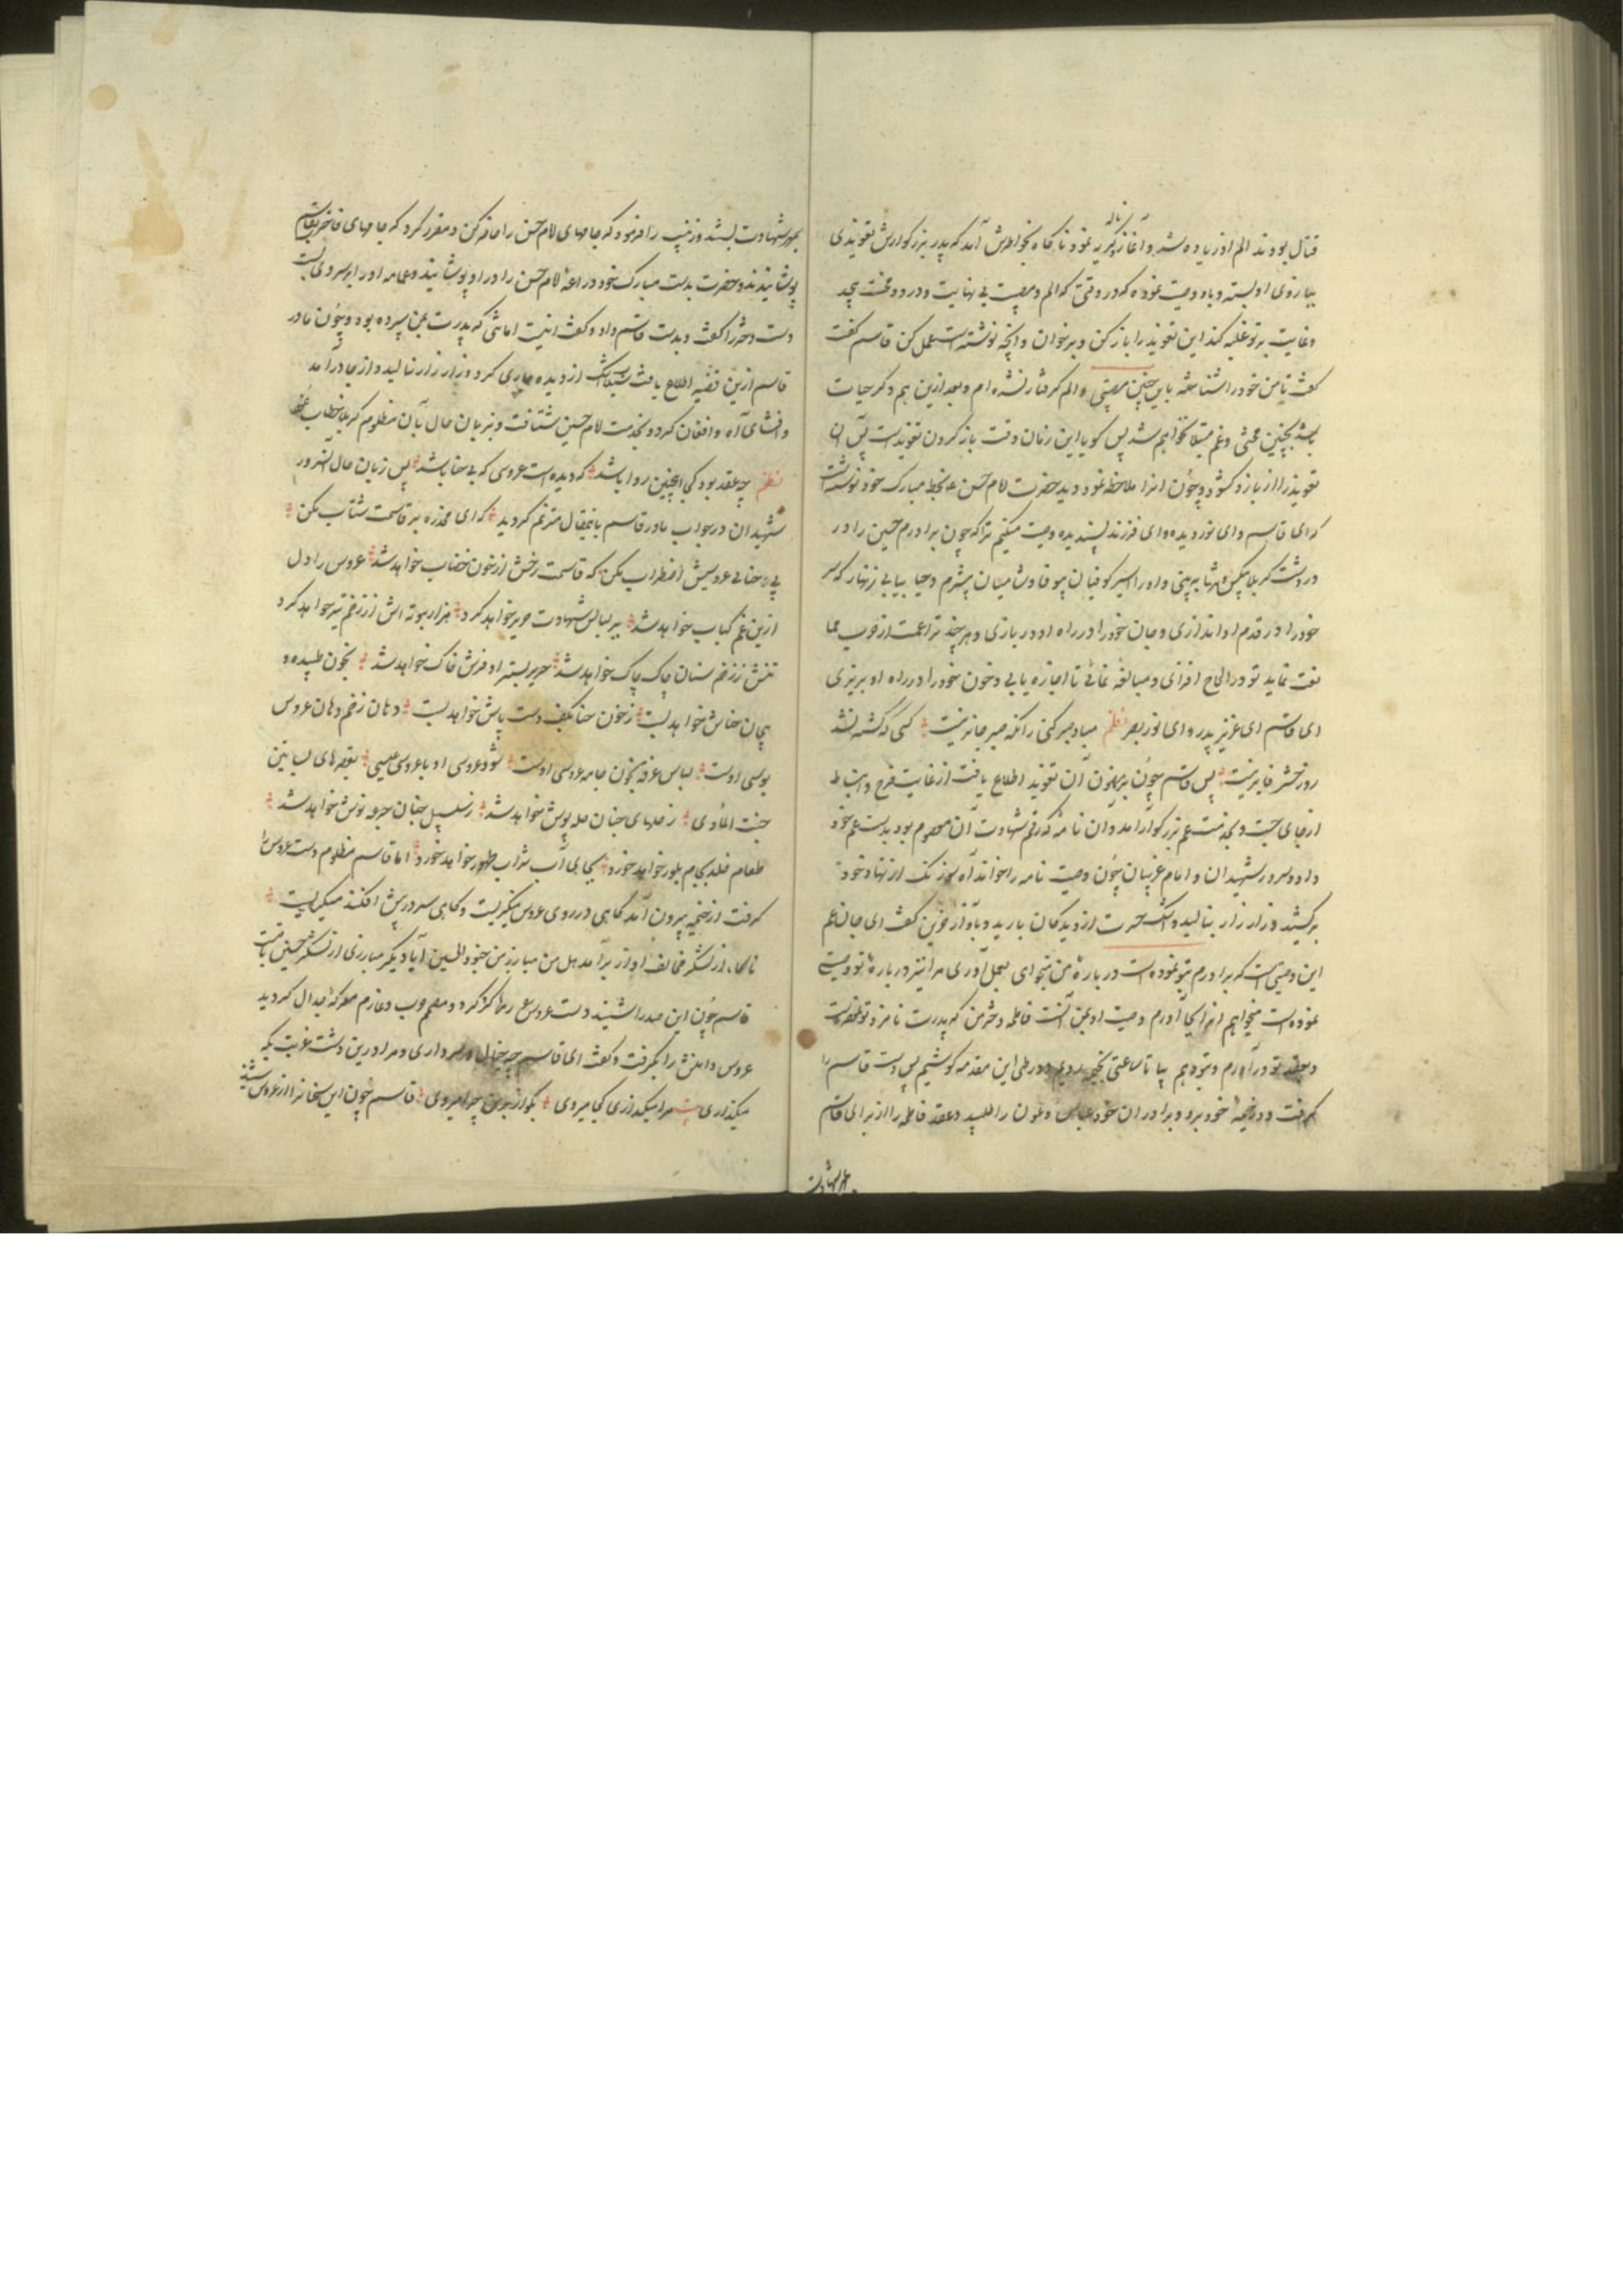 قتال بودند الم او زیاده شد و آغاز ناله و گریه نمود ناکاه بخاطرش آمد که پدر بزرکوارش تعویذی
ببازوی او بسته و باو وصیت نموده که در وقتی که الم و مصیبت بی نهایت و درد و محنت بیحد
و غایت بر تو غلبه کند این تعویذ را باز کن و برخوان و آنچه نوشته است عمل کن قاسم گفت
کفت تا من خود را شناخته باین چنین مصیبتی و الم گرفتار نشده ام و بعد ازین هم دگر حیات
بچنین محنتی و غم مبتلا نخواهم شد پس گویا این زمان وقت باز کردن تعویذ است پس آن
تعویذ را از بازو گشود و چون آنرا ملاحظه نمود دید حضرت امام حسن ع بخط مبارک خود نوشته است
که ای قاسم و ای نور دیده و ای فرزند پسندیده وصیت میکنم ترا که چون برادرم حسین را در
در دشت کربلا بیکس و تنها ببینی و او را اسیر کوفیان بیوفا و شامیان بیشرم و حیا بیابی زنهار که سر
خود را در قدم او اندازی و جان خود را در راه او در بازی و هر چند ترا عمت از حرب
منعت نماید تو در الحاح افزای و مبالغه نمائی تا اجازه یابی و خون خود را در راه او بریزی
ای قاسم ای عزیز پدر و ای نور بصر نظم مباد صبر کنی زانکه صبر جایز نیست کسی که کشته نشد
روز حشر فایز نیست پس قاسم چون بر مضمون آن تعویذ اطلاع یافت از غایت فرح و انبساط
از جای جست و بخدمت عم بزرکوار آمد و آن نامه که رقم شهادت آن معصوم بود بدست عم خود
داد و سرور شهیدان و امام غریبان چون وصیت نامه را خواند آه سوزناک از نهاد خود
برکشید و زار زار بنالید و اشک حسرت از دیدکان بارید و بآواز حزین کفت ای جان عم
این وصیتی است که برادرم بتو نموده است در باره من میخواهی بعمل آوری مرا نیز در باره تو وصیت
نموده است میخواهم آنرا بجا آورم وصیت او بمن آنست فاطمه دختر من که پدرت نامزد تو
و بعقد تو درآورم و بتو دهم بیا تا ساعتی بخیمه رویم و در طی این مقدمه کوشیم پس دست قاسم را
گرفت و در خیمهٔ خود برد و برادران خود عباس و عون را طلبید و عقد فاطمه را از برای قاسم
بمهر شهادت
بمهر شهادت بستند و زینب را فرمود که جامهای امام حسن را حاضر کن و مقرر کرد که جامهای فاخر بقاسم
پوشانیدند و حضرت بدست مبارک خود دراعه امام حسن را در او پوشانید و عمامه او را بر سر وی بست
دست دختر را گرفت و بدست قاسم داد و کفت اینست امانتی که پدرت بمن سپرده بود و چون مادر
قاسم ازین قضیه اطلاع یافت سیلاب اشک از دیده جاری کرد و زار زار نالید و از جا درآمد
و افشای آه و افغان کرد و بخدمت امام حسین شتافت و بزبان حال بآن مظلوم کربلا خطاب نمود
نظم چه عقد بود کی اینچنین روا باشد که دیده است عروسی که بی حنا باشد پس زبان حال آنسرور
شهیدان در جواب مادر قاسم باینمقال مترنم گردید که ای مخدره بر قاسمت شتاب مکن
پی حنای عروسیش اضطراب مکن که قاسمت رخش از خون خضاب خواهد شد عروس را دل
ازین غم کباب خواهد شد ببر لباس شهادت حریر خواهد کرد هزار بوته اش از زخم تیر خواهد کرد
تنش ززخم سنان چاک چاک خواهد شد حریر بستر او فرش خاک خواهد شد بخون طپیده و
بیجان حناش خواهد بست زخون حنا بکف دست و پاش خواهد بست دهان زخم دهان عروس
بوسی اوست لباس غرقه بخون جامه عروسی اوست شود عروسی او با عروسی عیسی بقصرهای بساتین
جنت المأوی زحلهای جنان حله پوش خواهد شد زسلسبیل جنان جرعه نوش خواهد شد
طعام خلد بجام بلور خواهد خورد بجای آب شراب طهور خواهد خورد اما قاسم مظلوم دست عروس را
گرفت از خیمه بیرون آمد گاهی در روی عروس مینگریست و گاهی سر در پیش افکنده میگریست
ناگاه از لشکر مخالف آواز برآمد هل من مبارز من جنود الحسین آیا دیگر مبارزی از لشکر حسین باقیست
قاسم چون این صدا را شنید دست عروس رها کرد و مصمم حرب و عازم معرکه جدال گردید
عروس دامنش را بگرفت و کفت ای قاسم چه خیال در سر داری و مرا درین دشت غربت بکه
میکذاری بیت مرا میکذاری کجا میروی بگو از بر من چرا میروی قاسم چون این سخنانرا از عروس شنید